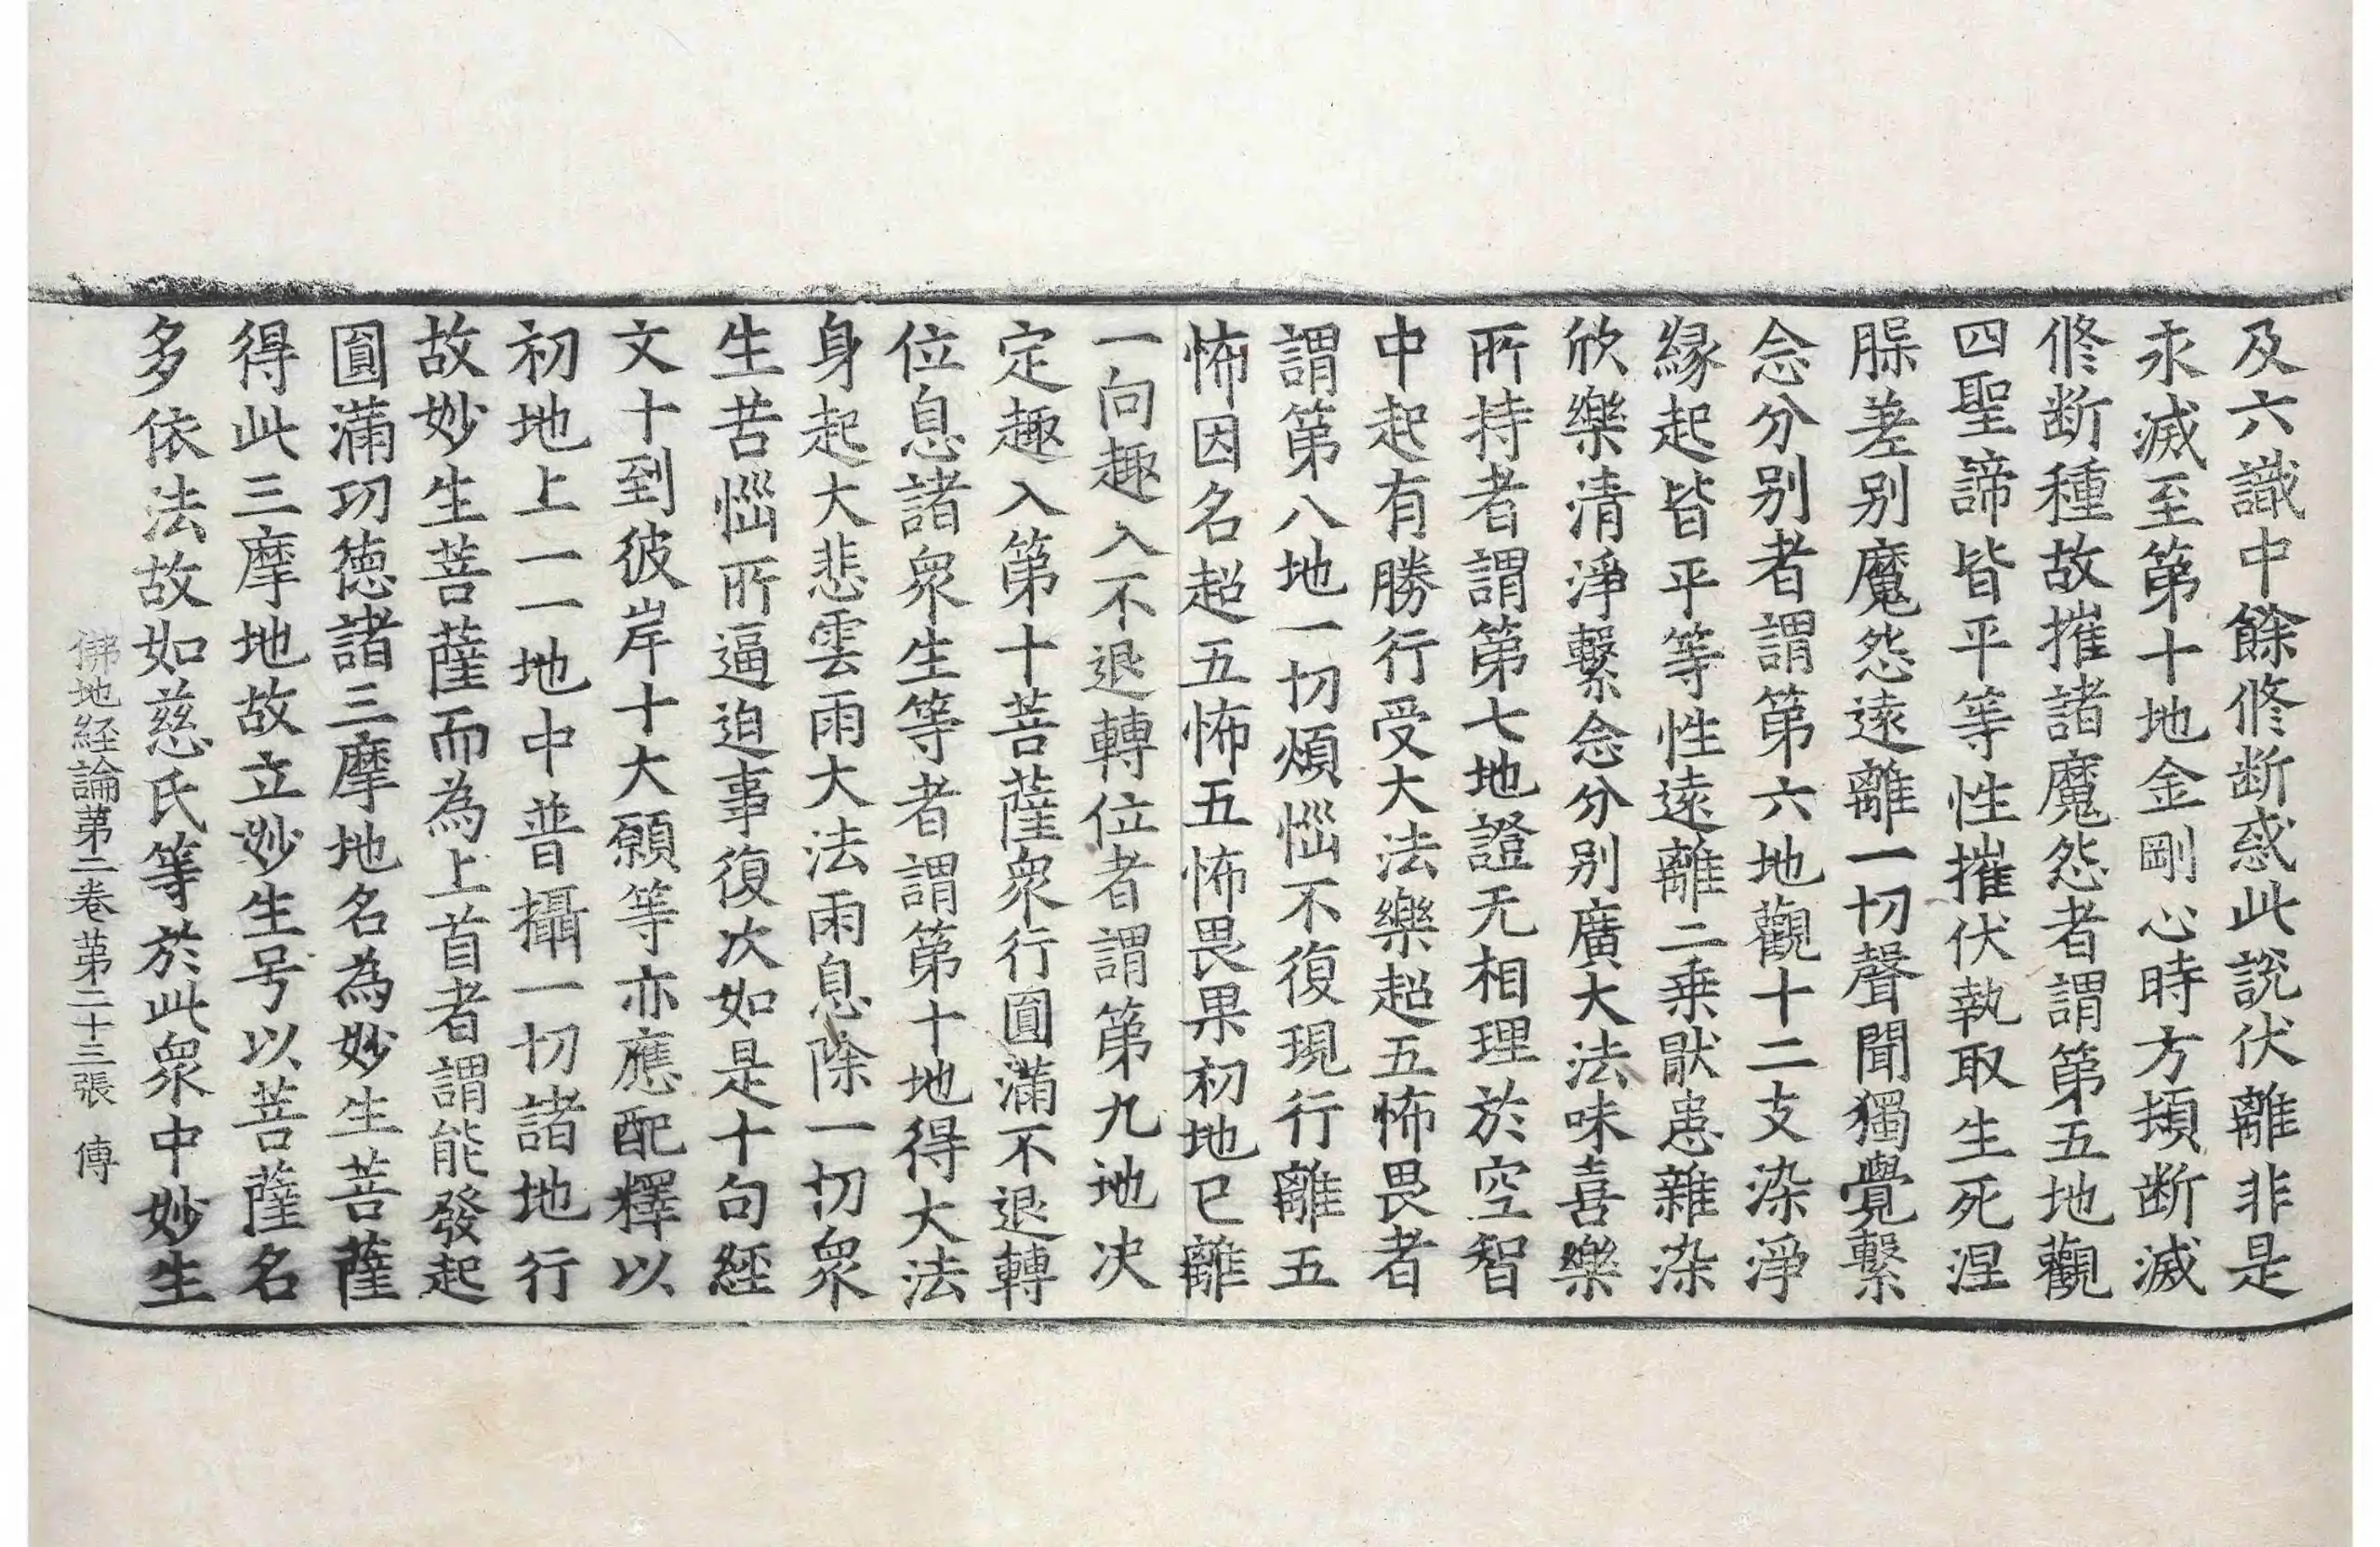 及六識中餘修断惑此說伏離非是
永滅至第十地金剛心時方頓断滅
修断種故摧諸魔怨者謂第五地觀
四聖諦皆平等性摧伏執取生死涅
臊差别魔怨遠離一切聲聞獨覺繫
念分别者謂第六地觀十二支染淨
緣起皆平等性遠離二乗猒患雜染
欣樂清淨繫念分别廣大法味喜樂
所持者謂第七地證无相理於空智
中起有勝行受大法樂超五怖畏者
謂第八地一切煩惱不復現行離五
怖因名超五怖五怖畏果初地已離
一向趣入不退轉位者謂第九地决
定趣入第十菩薩衆行圓滿不退轉
位息諸衆生等者謂第十地得大法
身起大悲雲雨大法雨息除一切衆
生苦惱所逼迫事復次如是十句經
文十到彼岸十大願等亦應配釋以
初地上一一地中普攝一切諸地行
故妙生菩薩而為上首者謂能發起
圓滿功徳諸三摩地名為妙生菩薩
得此三摩地故立妙生号以菩薩名
多依法故如慈氏等於此衆中妙生
佛地経論第二卷第二十三張 傳